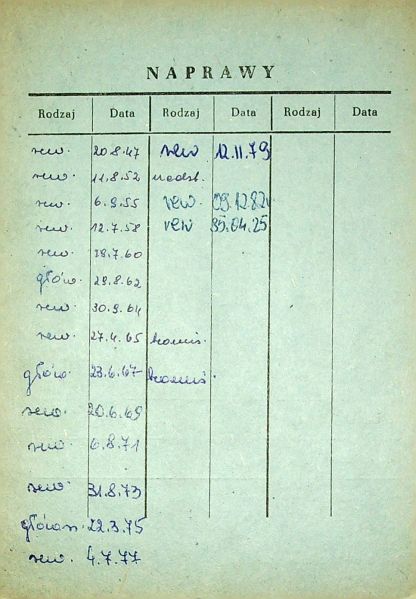 NAPRAWY
Rodzaj Data Rodzaj Data Rodzaj Data
rew. 20.8.47 rew 12.11.79
rew. 11.8.52 nadst.
rew. 6.9.55 rew. 09.12.82
rew. 12.7.58 rew 85.04.25
rew. 19.7.60
głów. 29.8.62
rew. 30.9.64
rew. 27.4.65
głów. 23.6.67
rew. 20.6.69
rew. 6.8.71
rew. 31.8.73
główn. 22.3.75
rew. 4.7.77